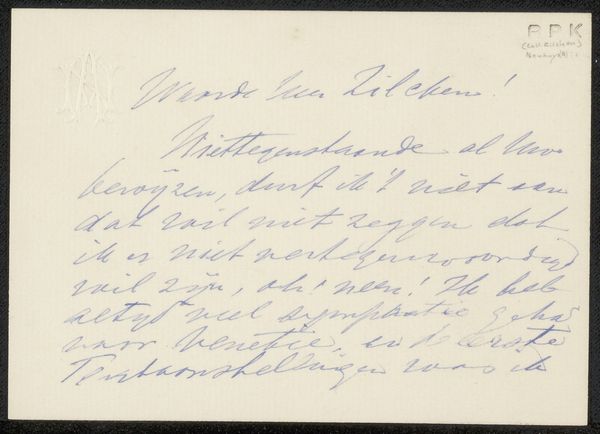 PPK
Waarde heer Zilcken!
Niettegenstaande al Uw
bewijzen, durf ik 't niet aan
dat wil niet zeggen dat
ik er niet vertegenwoordigd
wil zijn, oh! neen! Ik heb
altyd veel sympathie gehad
voor Venetie, en de eerste
Tentoonstellingen was ik